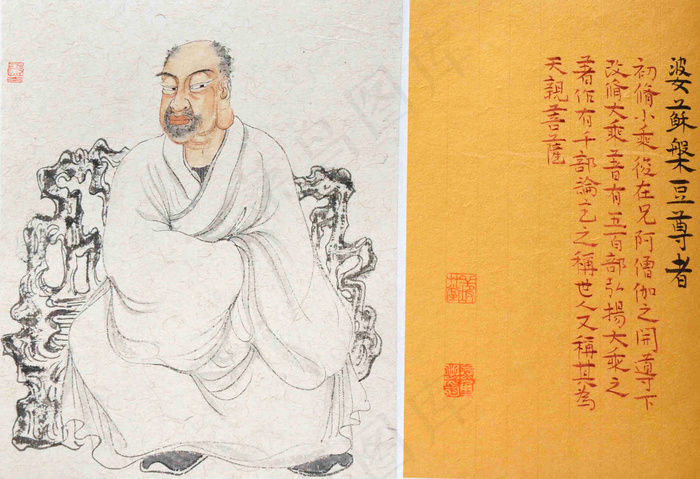 婆蘇槃豆尊者
初脩小乘後在兄阿僧伽之開導下
改脩大乘著有五百部弘揚大乘之
著作有千部論主之稱世人又稱其為
天親菩薩